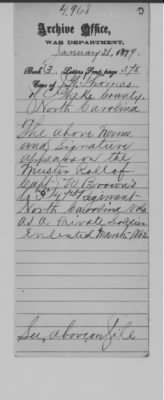 4.968
Archive Office,
WAR DEPARTMENT,
January 21, 1879.
Book 3. Letters Sent, page 378
Copy of J. Thomas
of Wake County
North Carolina
The above name
and signature
appears on the
Muster Roll of
Capt W. Brown's
Co Regiment
North Carolina Vols
as a private soldier
Enlisted March 1862
See above on file